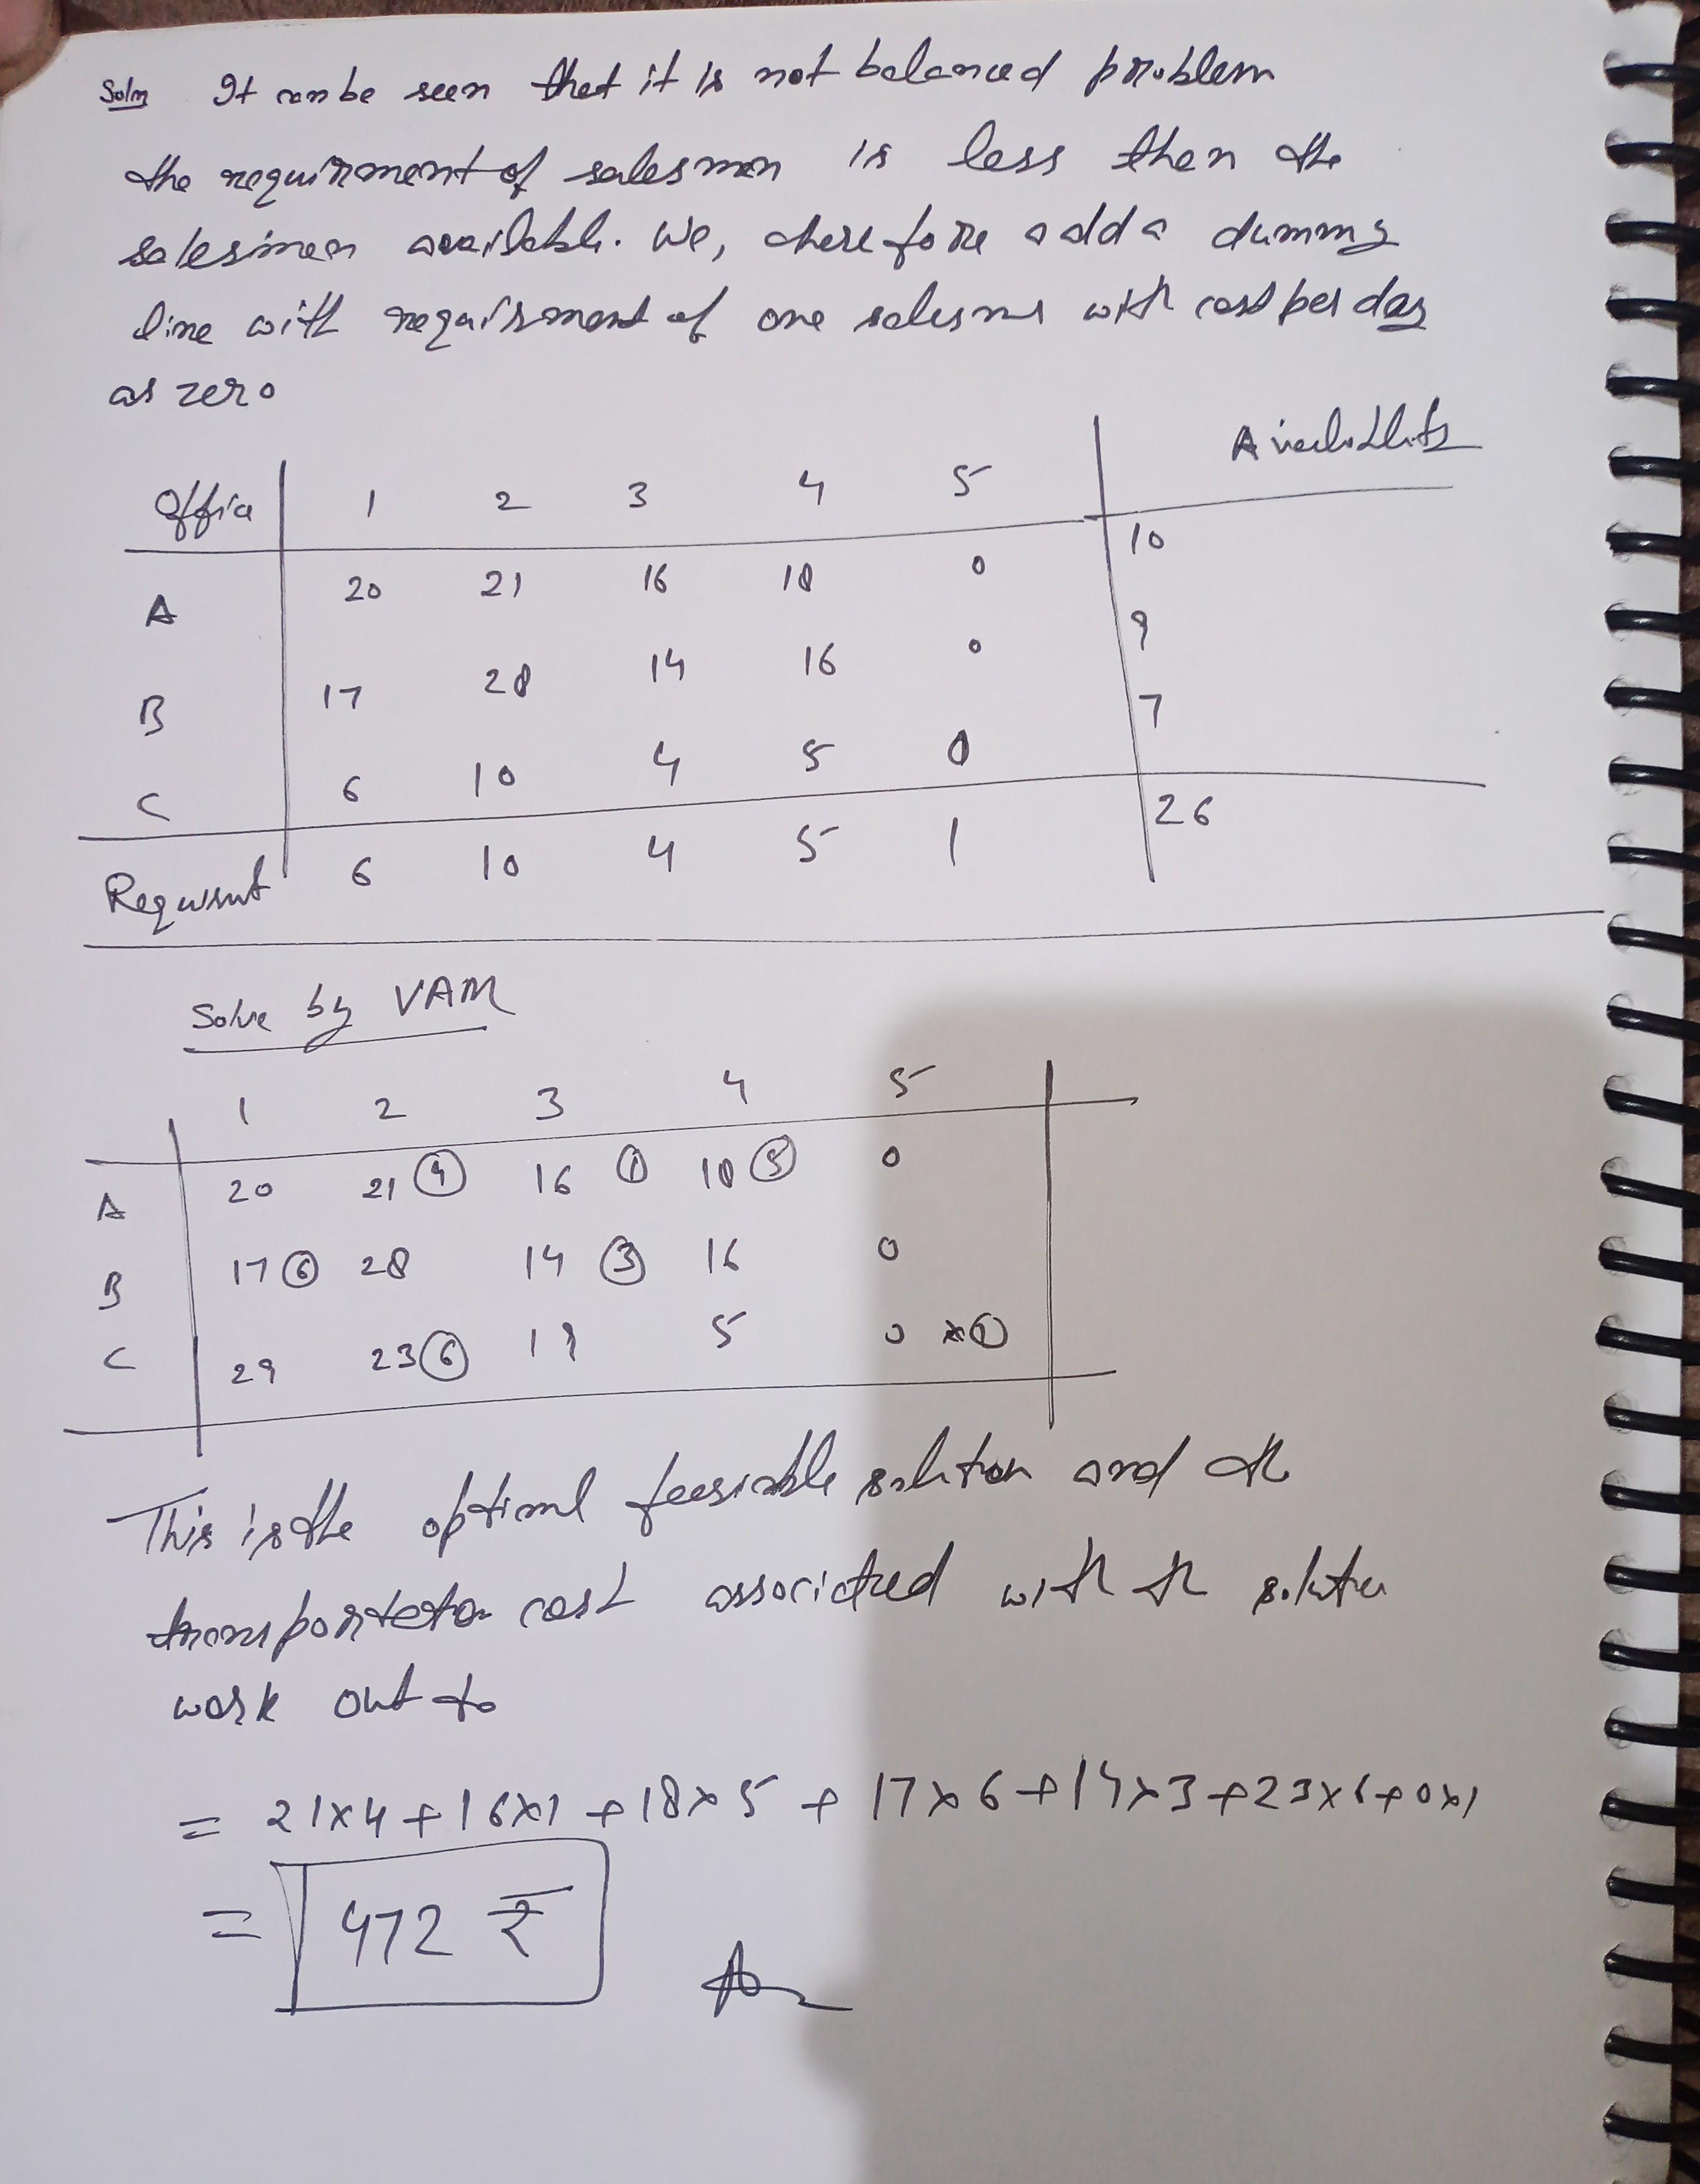 Soln It can be seen that it is not balanced problem
the requirment of salesman is less then the
salesman available. We, therefore add a dummy
line with requirment of one salesmn with cost per day
as zero
Office 1 2 3 4 5 Availability
A 20 21 16 18 0 10
B 17 28 14 16 0 9
C 6 10 4 5 0 7
Requirmt 6 10 4 5 1 26
Solve by VAM
1 2 3 4 5
A 20 21 ④ 16 ① 18 ⑤ 0
B 17 ⑥ 28 14 ③ 16 0
C 29 23 ⑥ 19 5 0 ×①
This is the optiml feesiable solution and th
transporteton cost associcted with th solution
work out to
= 21×4+16×1+18×5+17×6+14×3+23×6+0×1
= 472 ₹